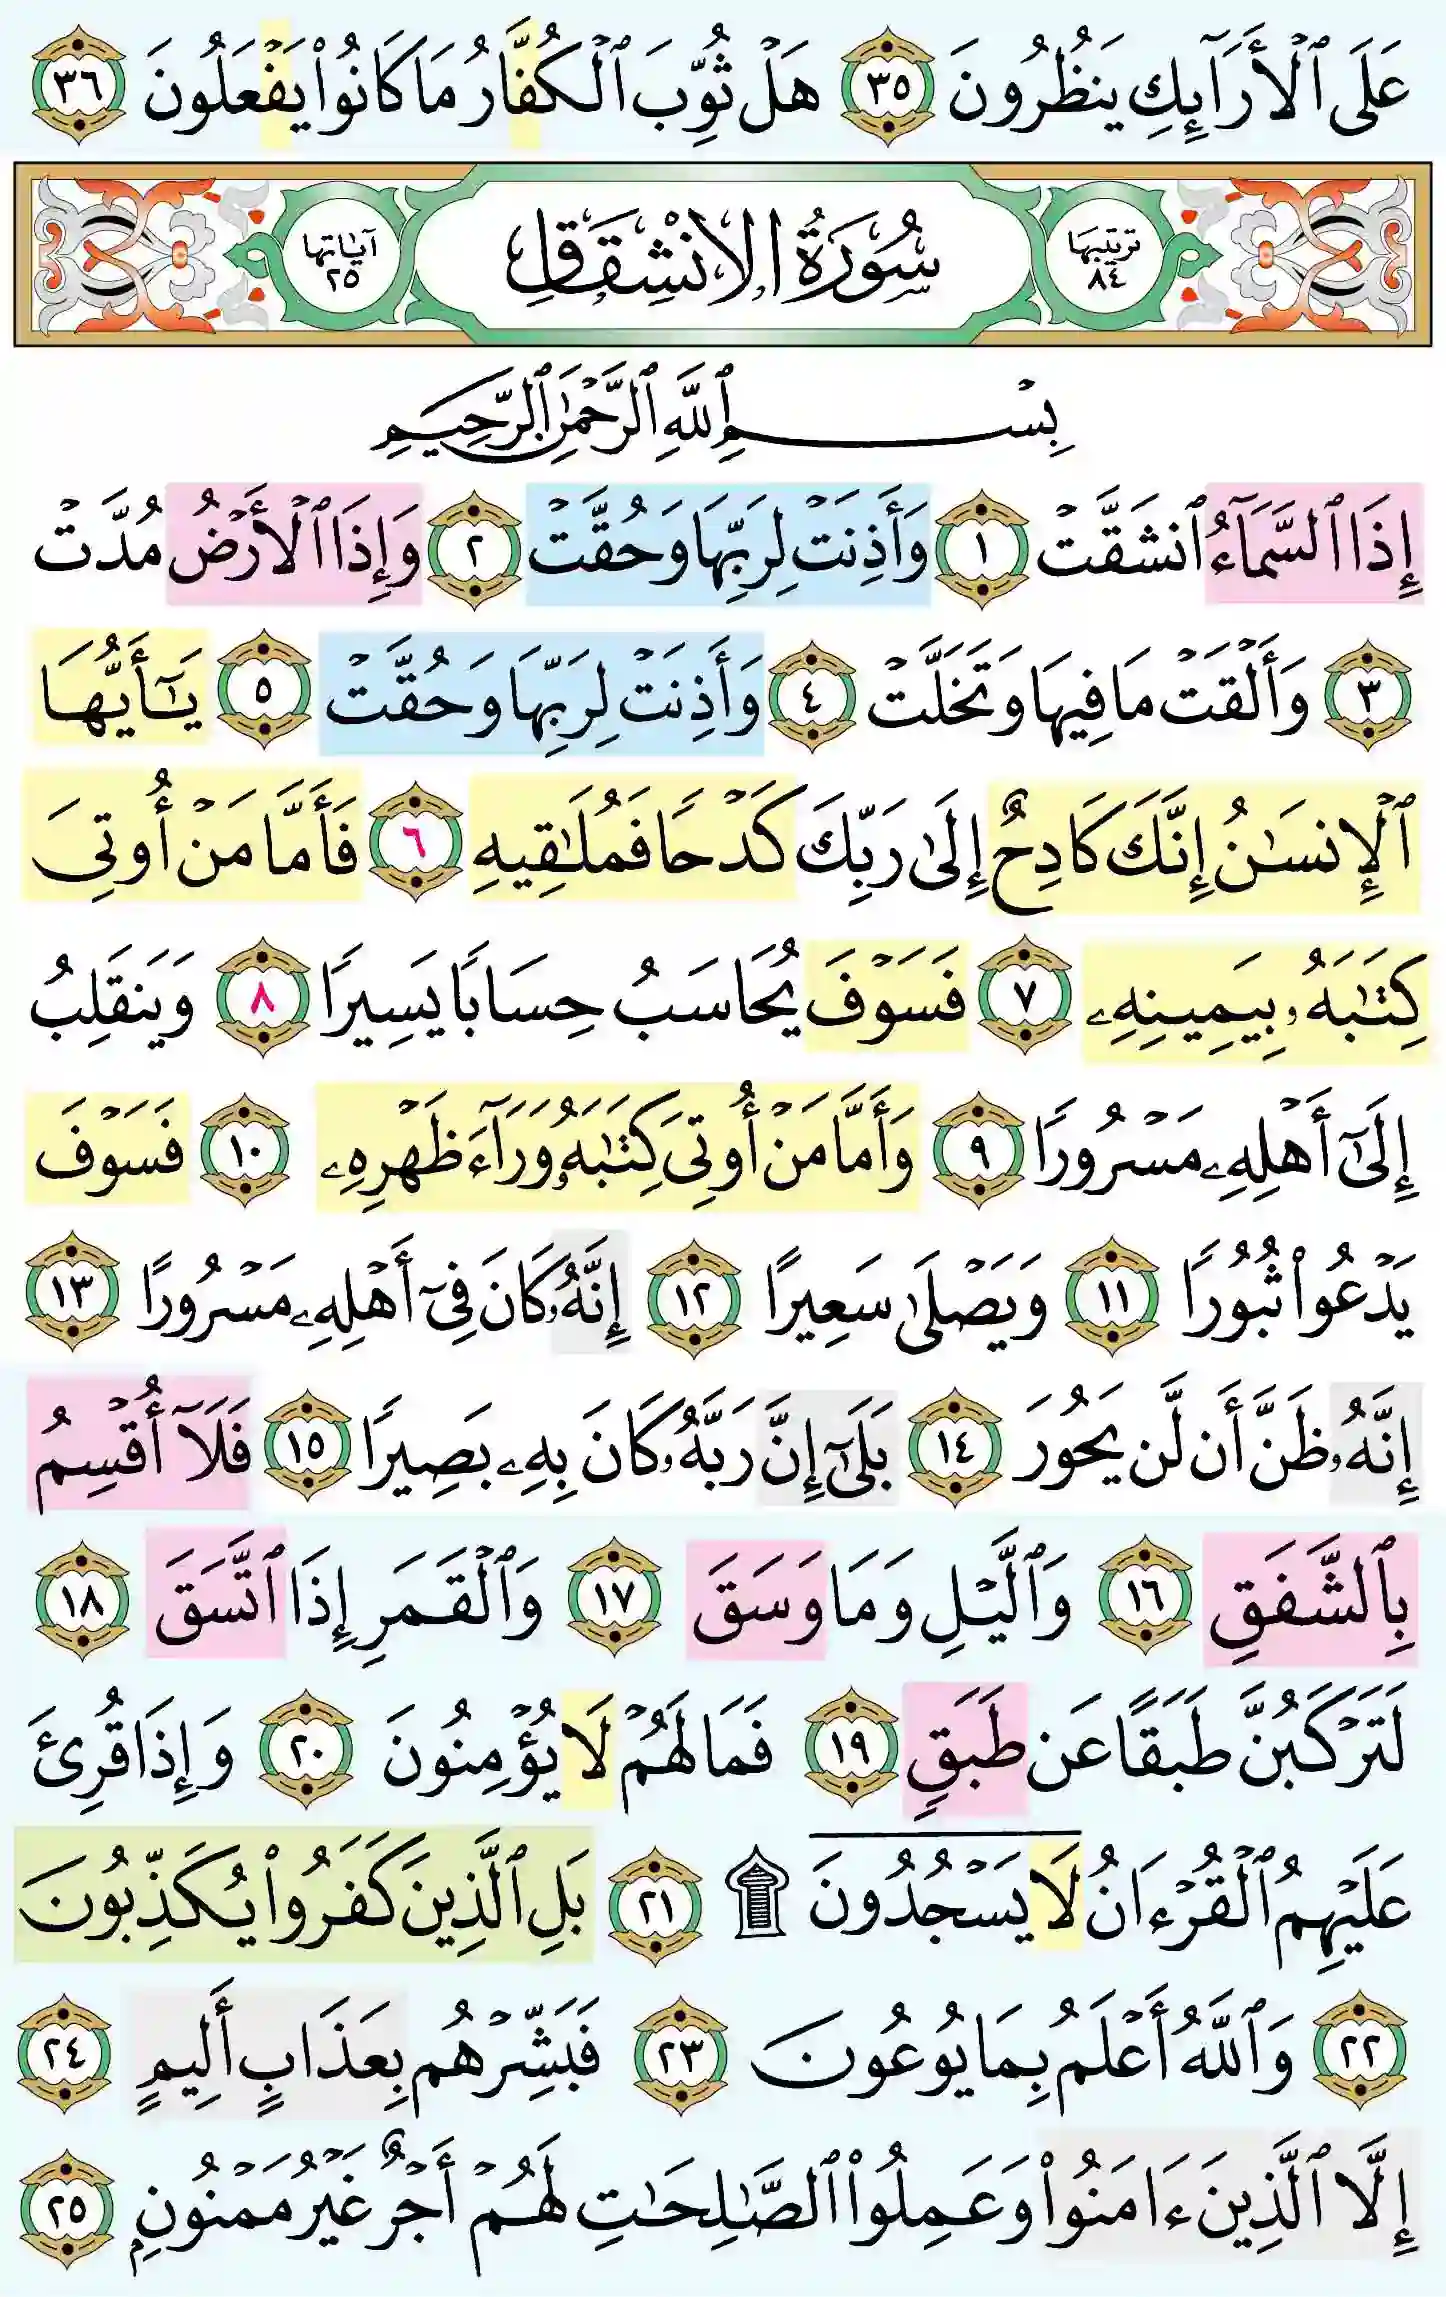 عَلَى ٱلْأَرَآئِكِ يَنظُرُونَ ٣٥ هَلْ ثُوِّبَ ٱلْكُفَّارُ مَا كَانُوا۟ يَفْعَلُونَ ٣٦
ترتيبها ٨٤ سُورَةُ الِانْشِقَاقِ آياتها ٢٥
بِسْمِ ٱللَّهِ ٱلرَّحْمَٰنِ ٱلرَّحِيمِ
إِذَا ٱلسَّمَآءُ ٱنشَقَّتْ ١ وَأَذِنَتْ لِرَبِّهَا وَحُقَّتْ ٢ وَإِذَا ٱلْأَرْضُ مُدَّتْ
٣ وَأَلْقَتْ مَا فِيهَا وَتَخَلَّتْ ٤ وَأَذِنَتْ لِرَبِّهَا وَحُقَّتْ ٥ يَٰٓأَيُّهَا
ٱلْإِنسَٰنُ إِنَّكَ كَادِحٌ إِلَىٰ رَبِّكَ كَدْحًا فَمُلَٰقِيهِ ٦ فَأَمَّا مَنْ أُوتِىَ
كِتَٰبَهُۥ بِيَمِينِهِۦ ٧ فَسَوْفَ يُحَاسَبُ حِسَابًا يَسِيرًا ٨ وَيَنقَلِبُ
إِلَىٰٓ أَهْلِهِۦ مَسْرُورًا ٩ وَأَمَّا مَنْ أُوتِىَ كِتَٰبَهُۥ وَرَآءَ ظَهْرِهِۦ ١٠ فَسَوْفَ
يَدْعُوا۟ ثُبُورًا ١١ وَيَصْلَىٰ سَعِيرًا ١٢ إِنَّهُۥ كَانَ فِىٓ أَهْلِهِۦ مَسْرُورًا ١٣
إِنَّهُۥ ظَنَّ أَن لَّن يَحُورَ ١٤ بَلَىٰٓ إِنَّ رَبَّهُۥ كَانَ بِهِۦ بَصِيرًا ١٥ فَلَآ أُقْسِمُ
بِٱلشَّفَقِ ١٦ وَٱلَّيْلِ وَمَا وَسَقَ ١٧ وَٱلْقَمَرِ إِذَا ٱتَّسَقَ ١٨
لَتَرْكَبُنَّ طَبَقًا عَن طَبَقٍ ١٩ فَمَا لَهُمْ لَا يُؤْمِنُونَ ٢٠ وَإِذَا قُرِئَ
عَلَيْهِمُ ٱلْقُرْءَانُ لَا يَسْجُدُونَ ۩ ٢١ بَلِ ٱلَّذِينَ كَفَرُوا۟ يُكَذِّبُونَ
٢٢ وَٱللَّهُ أَعْلَمُ بِمَا يُوعُونَ ٢٣ فَبَشِّرْهُم بِعَذَابٍ أَلِيمٍ ٢٤
إِلَّا ٱلَّذِينَ ءَامَنُوا۟ وَعَمِلُوا۟ ٱلصَّٰلِحَٰتِ لَهُمْ أَجْرٌ غَيْرُ مَمْنُونٍۭ ٢٥